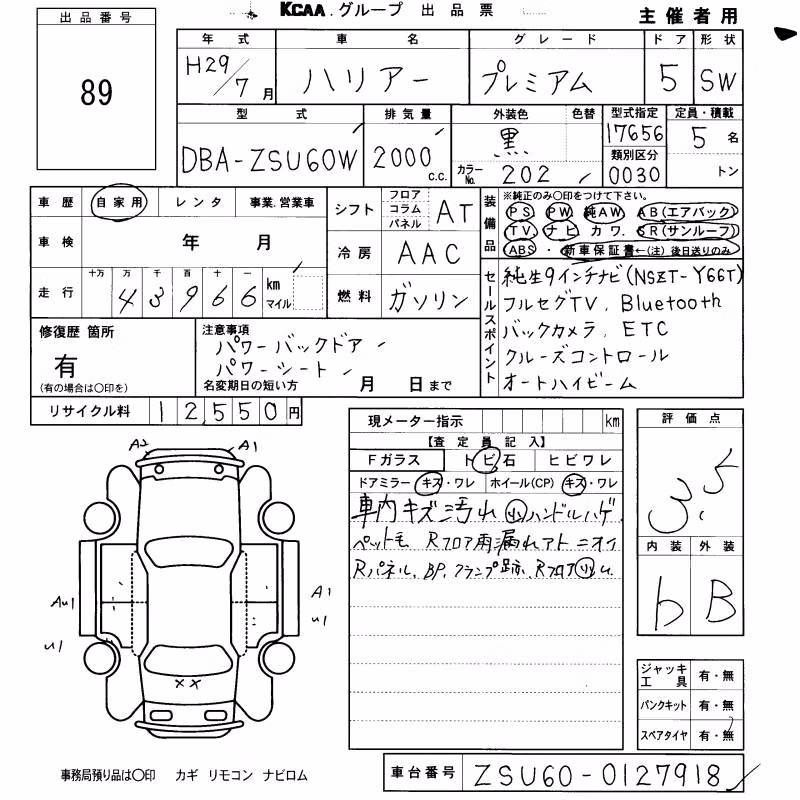 KCAA.グループ 出品票
主催者用
出品番号
89
年式 車名 グレード ドア 形状
H29/7月 ハリアー プレミアム 5 SW
型式 排気量 外装色 色替 型式指定 定員・積載
DBA-ZSU60W 2000 c.c. 黒 17656 5名
カラーNo. 202 類別区分 0030 トン
車歴 自家用 レンタ 事業.営業車
車検 年 月
走行 十万 万 千 百 十 一
43966 km マイル
シフト フロア コラム パネル AT
冷房 AAC
燃料 ガソリン
装備品 ※純正のみ○印をつけて下さい。
PS PW 純AW AB(エアバック)
TV ナビ カワ. SR(サンルーフ)
ABS ・ 新車保証書←(注)後日送りのみ
セールスポイント
純生9インチナビ(NSZT-Y66T)
フルセグTV, Bluetooth
バックカメラ, ETC
クルーズコントロール
オートハイビーム
修復歴 箇所
有
(有の場合は○印を)
注意事項
パワーバックドアー
パワーシート
名変期日の短い方 月 日まで
リサイクル料 12,550円
現メーター指示 km
【査定員記入】
Fガラス トビ石 ヒビワレ
ドアミラー キズ・ワレ ホイール(CP) キズ・ワレ
車内キズ汚れ小 ハンドルハゲ.
ペット毛 Rフロア雨漏れアト ニオイ
Rパネル, BP, クランプ跡, Rフロア
評価点
3.5
内装 外装
b B
ジャッキ工具 有・無
パンクキット 有・無
スペアタイヤ 有・無
A2 A1
Au1 A1
u1 u1
××
事務局預り品は○印 カギ リモコン ナビロム
車台番号 ZSU60-0127918